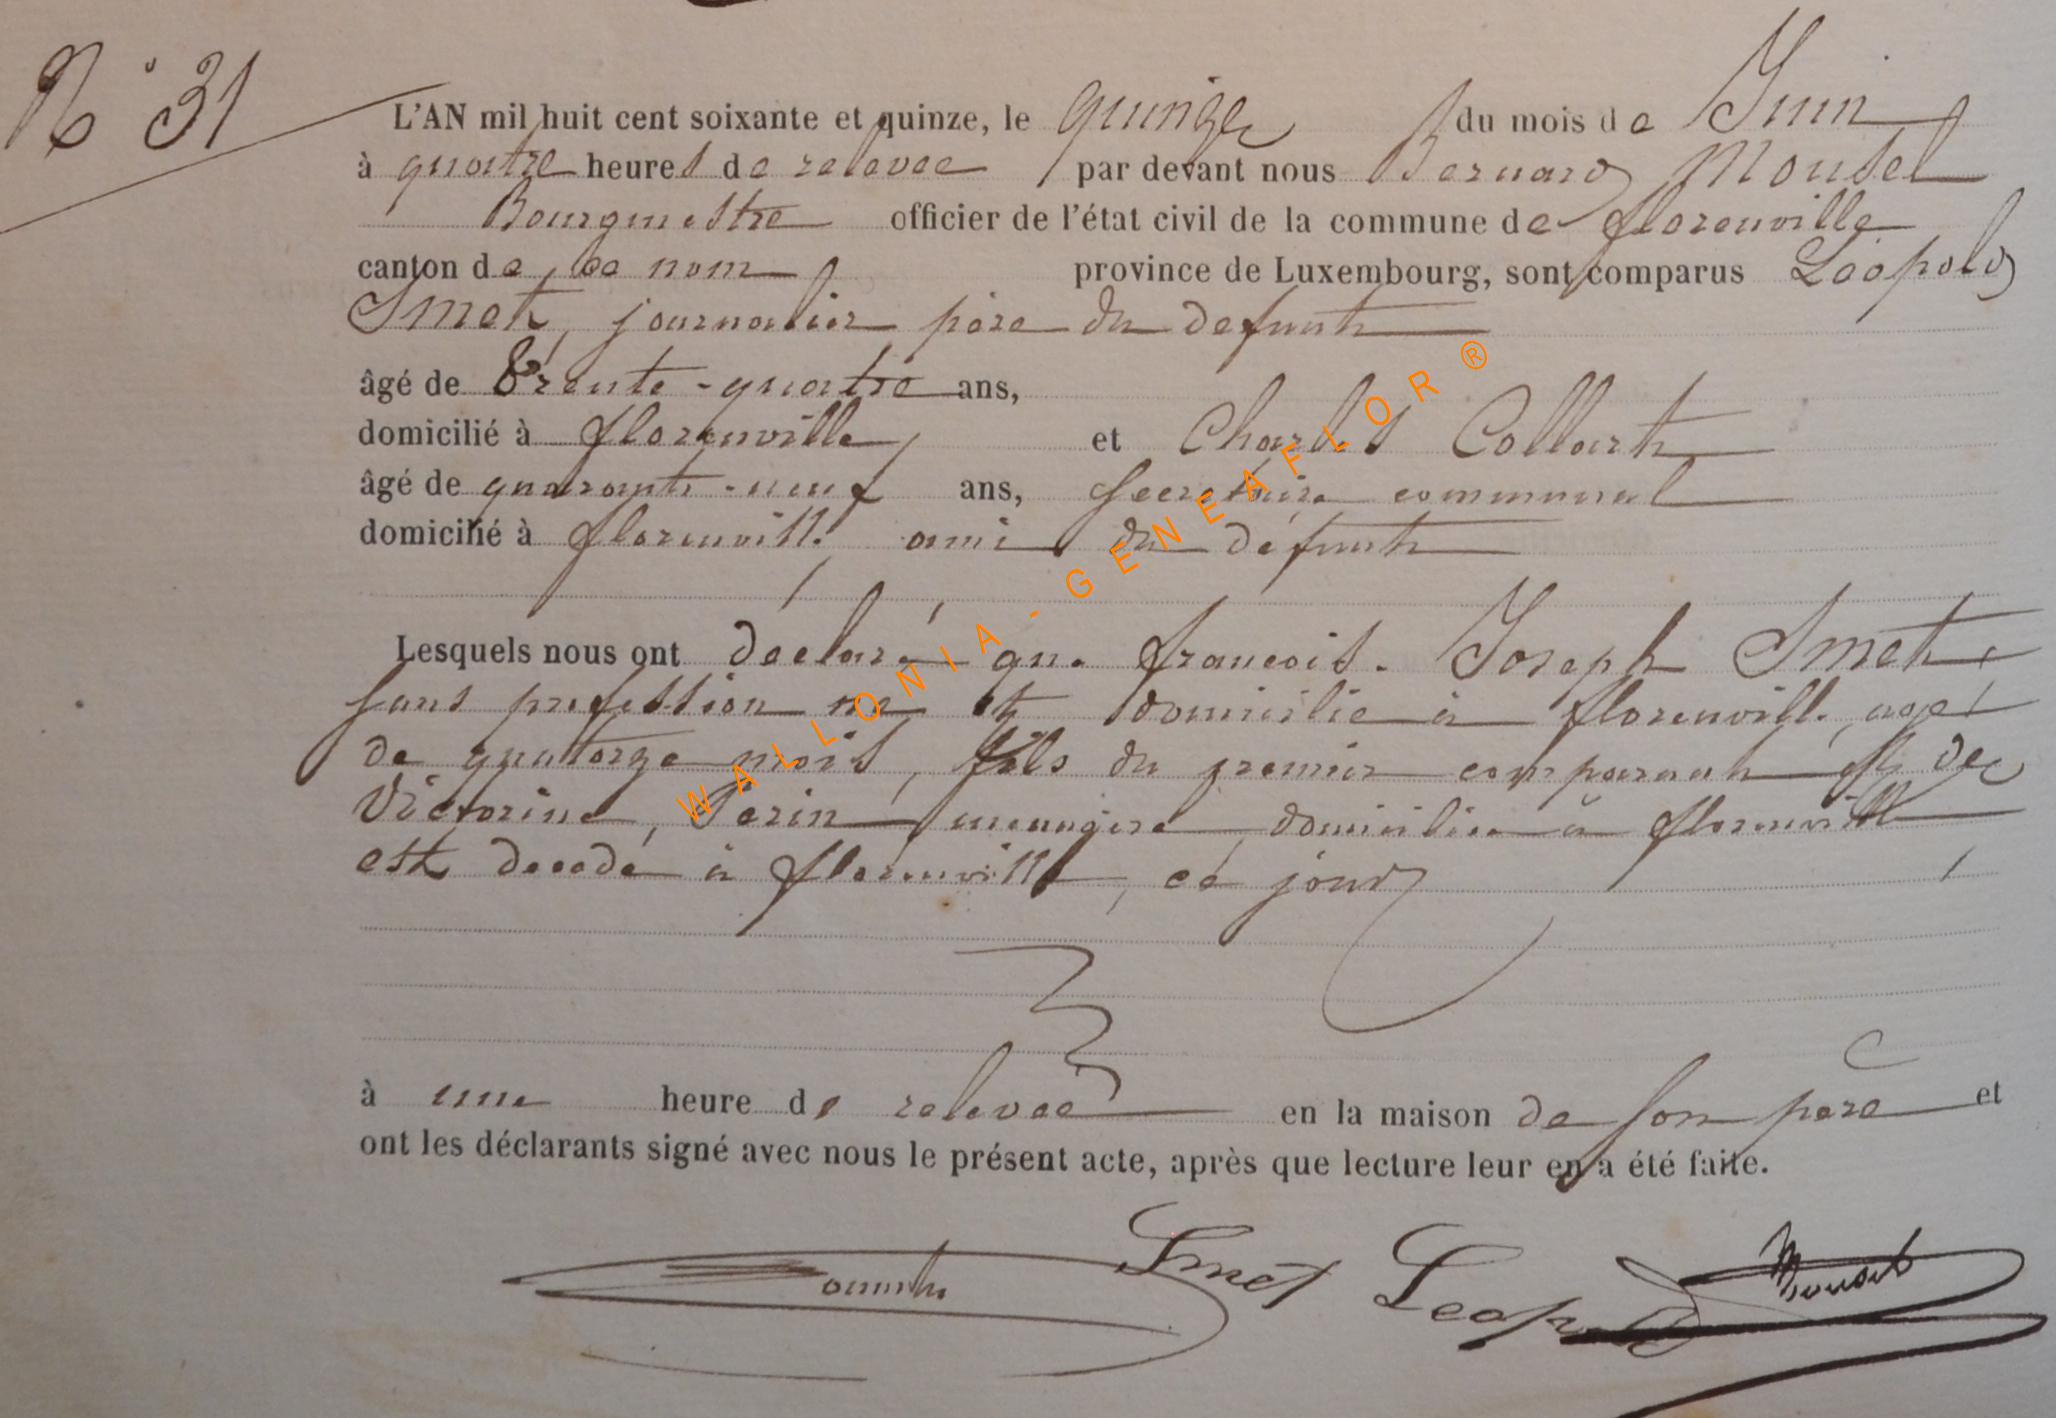 N° 31
L'AN mil huit cent soixante et quinze, le quinze du mois de Juin
à quatre heures de relevée par devant nous Bernard Mousel
Bourgmestre officier de l'état civil de la commune de florenville
canton de ce nom, province de Luxembourg, sont comparus Léopold
Smet, journalier père du defunt
âgé de trente-quatre ans,
domicilié à florenville, et Charles Collart
âgé de quarante-neuf ans, secretaire communal
domicilié à florenville ami du défunt
Lesquels nous ont déclaré que francois Joseph Smet
sans profession né et domicilié à florenville, agé
de quatorze mois, fils du premier comparant et de
Victorine Perin menagère domiciliée à florenville
est decedé à florenville, ce jour
à une heure de relevée en la maison de son père et
ont les déclarants signé avec nous le présent acte, après que lecture leur en a été faite.
Smet Leopold Mousel
WALLONIA - GENEAFLOR ®